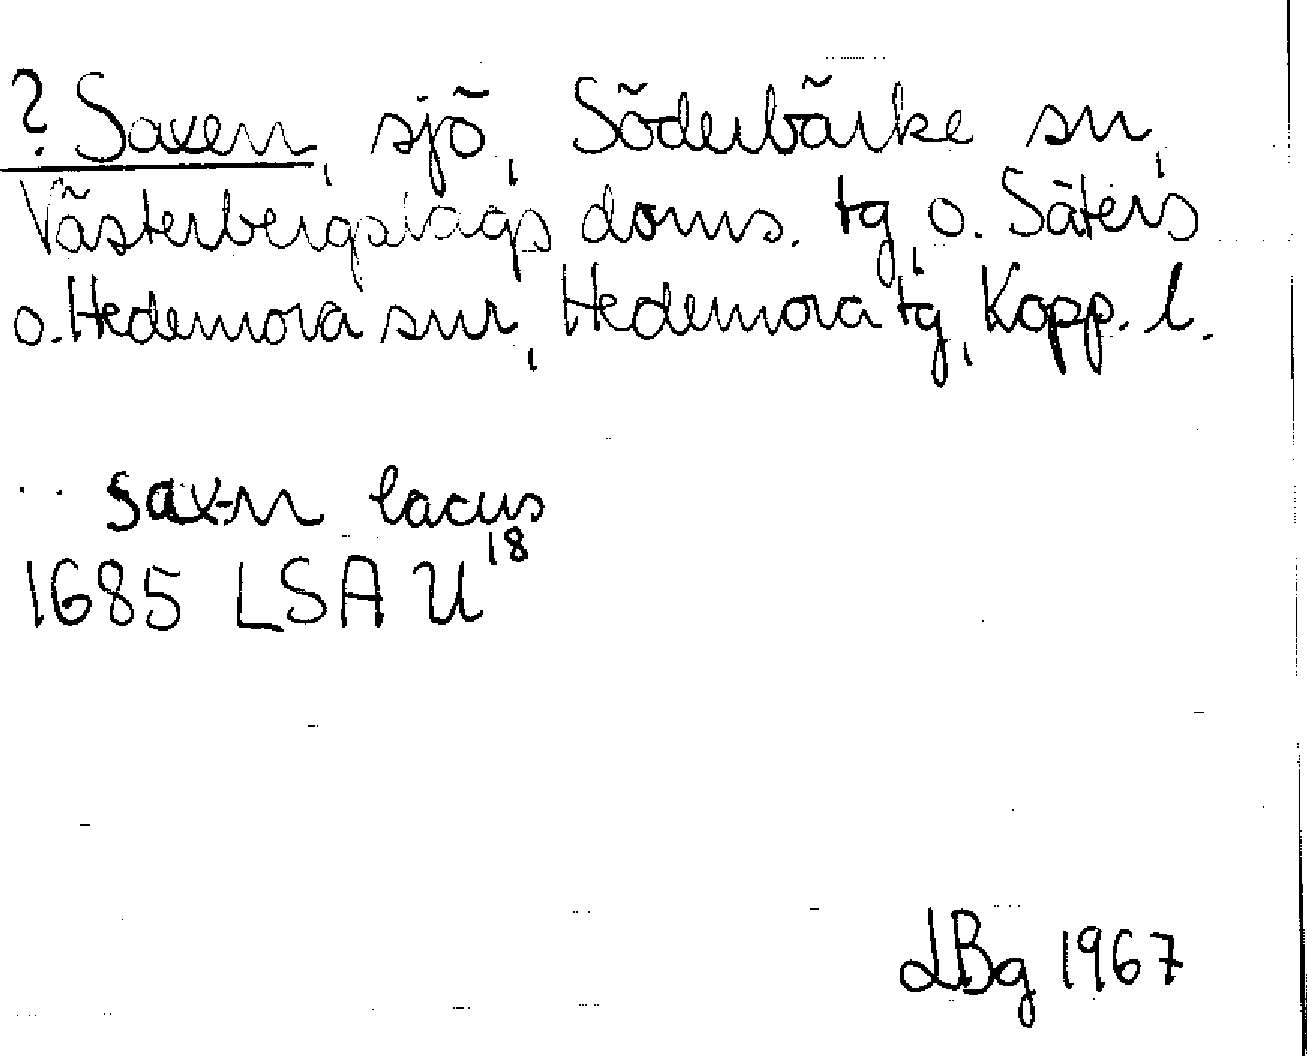 ? Saxen, sjö, Söderbärke sn,
Västerbergslags doms. tg, o. Säters
o. Hedemora snr, Hedemora tg, Kopp. l.
sax-n lacus
1685 LSA U 18
LBg 1967